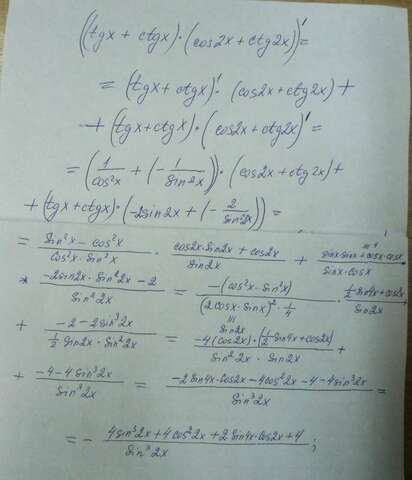 ((tgx + ctgx)·(cos2x + ctg2x))' =
= (tgx + ctgx)'·(cos2x + ctg2x) +
+ (tgx + ctgx)·(cos2x + ctg2x)' =
= (1/cos²x + (-1/sin²x))·(cos2x + ctg2x) +
+ (tgx + ctgx)·(-2sin2x + (-2/sin²2x)) =
= (sin²x - cos²x)/(cos²x·sin²x) · (cos2x·sin2x + cos2x)/sin2x + (sinx·sinx + cosx·cosx)/(sinx·cosx) "1
* (-2sin2x·sin²2x - 2)/sin²2x = -(cos²x - sin²x)/((2cosx·sinx)²·1/4) · (1/2 sin4x + cos2x)/sin2x
" sin2x
+ (-2 - 2sin³2x)/(1/2 sin2x·sin²2x) = -4(cos2x)·(1/2 sin4x + cos2x)/(sin²2x·sin2x) +
+ (-4 - 4sin³2x)/sin³2x = (-2sin4x·cos2x - 4cos²2x - 4 - 4sin³2x)/sin³2x =
= - (4sin³2x + 4cos²2x + 2sin4x·cos2x + 4)/sin³2x ;